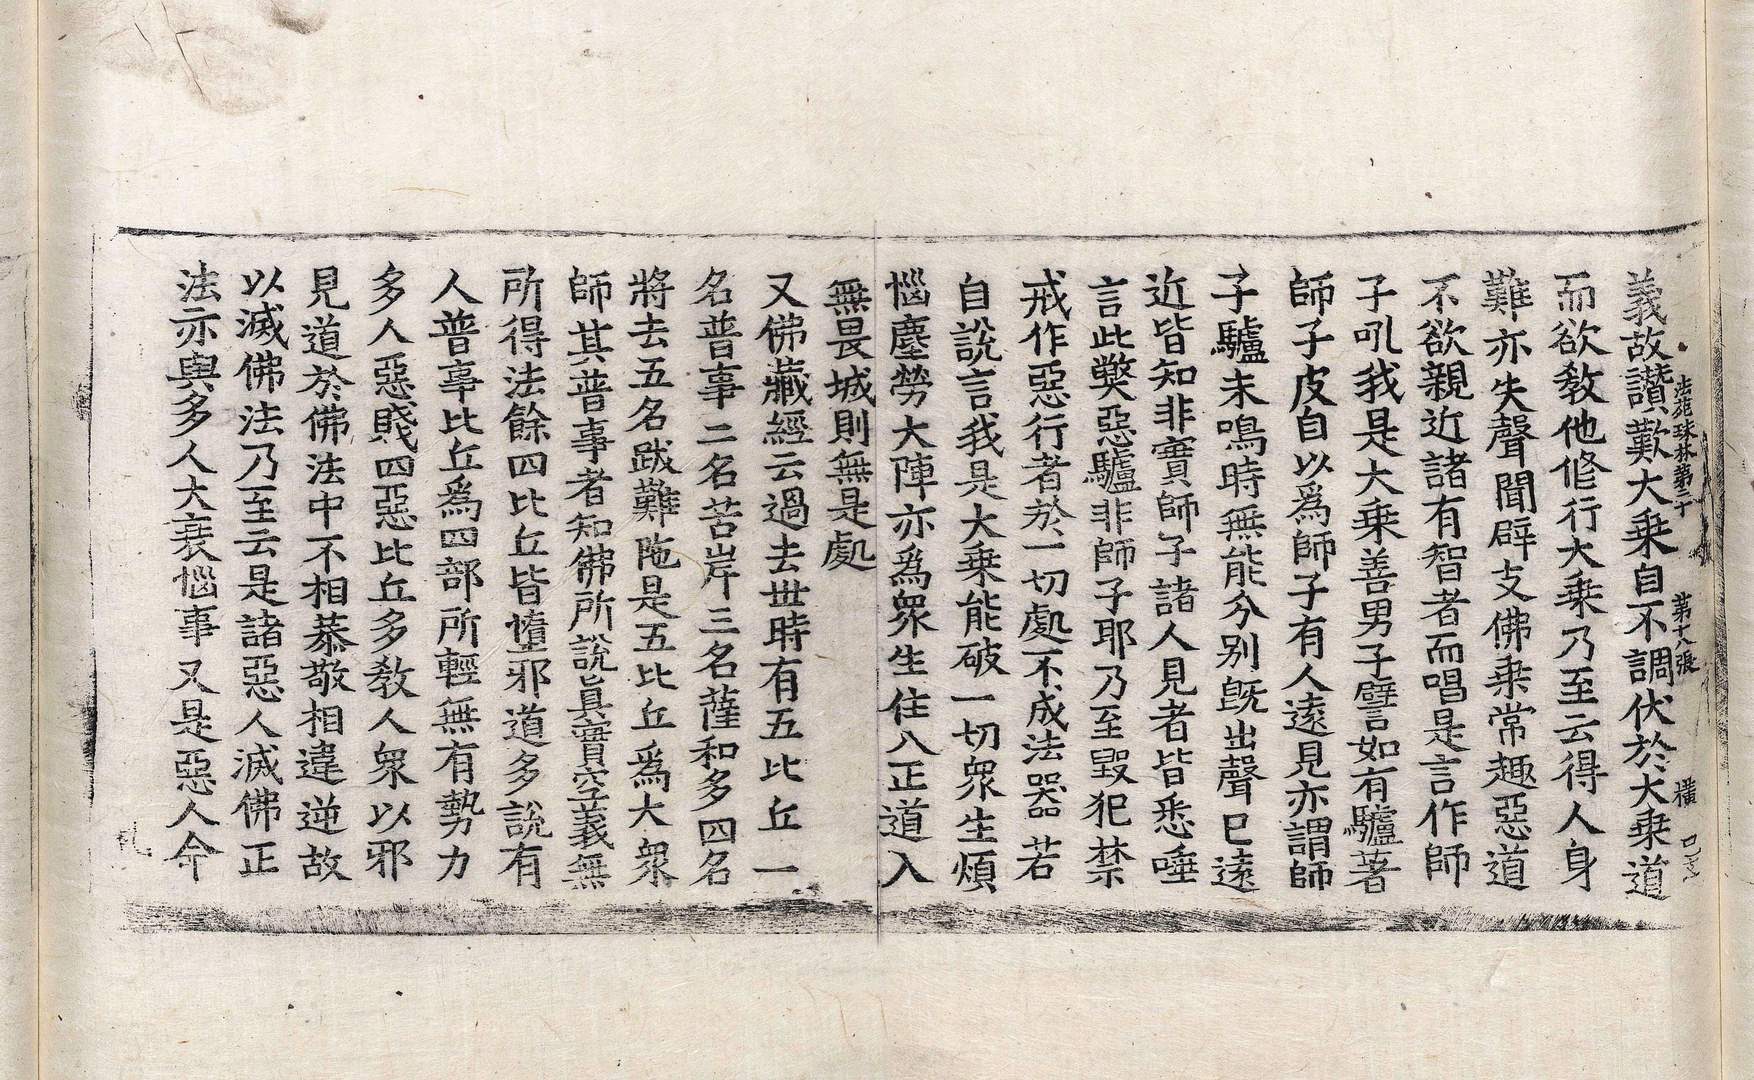 法苑珠林第二十 第十八張 橫
義故讃歎大乗自不調伏於大乗道
而欲教他修行大乗乃至云得人身
難亦失聲聞辟支佛乗常趣惡道
不欲親近諸有智者而唱是言作師
子吼我是大乗善男子譬如有驢著
師子皮自以爲師子有人遠見亦謂師
子驢未鳴時無能分別旣出聲已遠
近皆知非實師子諸人見者皆悉唾
言此弊惡驢非師子耶乃至毀犯禁
戒作惡行者於一切處不成法器若
自說言我是大乗能破一切衆生煩
惱塵勞大陣亦爲衆生住八正道入
無畏城則無是處
又佛藏經云過去世時有五比丘一
名普事二名苦岸三名薩和多四名
將去五名跋難陁是五比丘爲大衆
師其普事者知佛所說眞實空義無
所得法餘四比丘皆墮邪道多說有
人普事比丘爲四部所輕無有勢力
多人惡賤四惡比丘多教人衆以邪
見道於佛法中不相恭敬相違逆故
以滅佛法乃至云是諸惡人滅佛正
法亦與多人大衰惱事又是惡人命